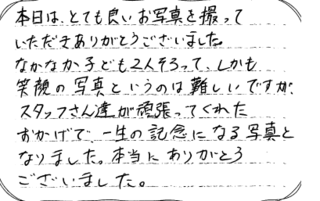 本日は、とても良いお写真を撮って
いただきありがとうございました。
なかなか子ども2人そろって、しかも
笑顔の写真というのは難しいですが、
スタッフさん達が頑張ってくれた
おかげで一生の記念になる写真と
なりました。本当にありがとう
ございました。